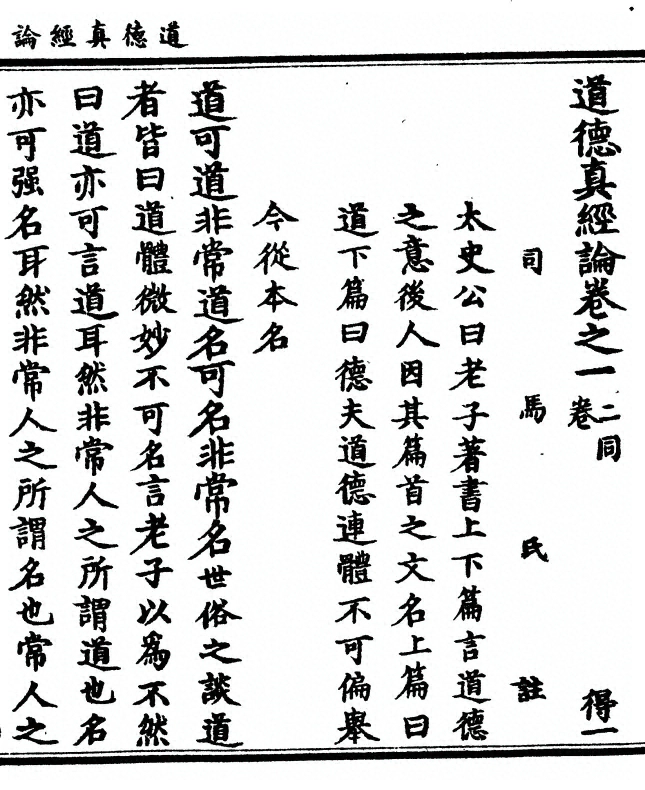 道德真經論
道德真經論卷之一 二同卷 得一
司馬氏註
太史公曰老子著書上下篇言道德
之意後人因其篇首之文名上篇曰
道下篇曰德夫道德連體不可偏舉
今從本名
道可道非常道名可名非常名世俗之談道
者皆曰道體微妙不可名言老子以為不然
曰道亦可言道耳然非常人之所謂道也名
亦可强名耳然非常人之所謂名也常人之